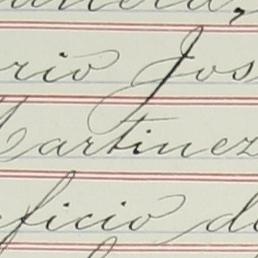 rio Jos
Martinez
ficio de